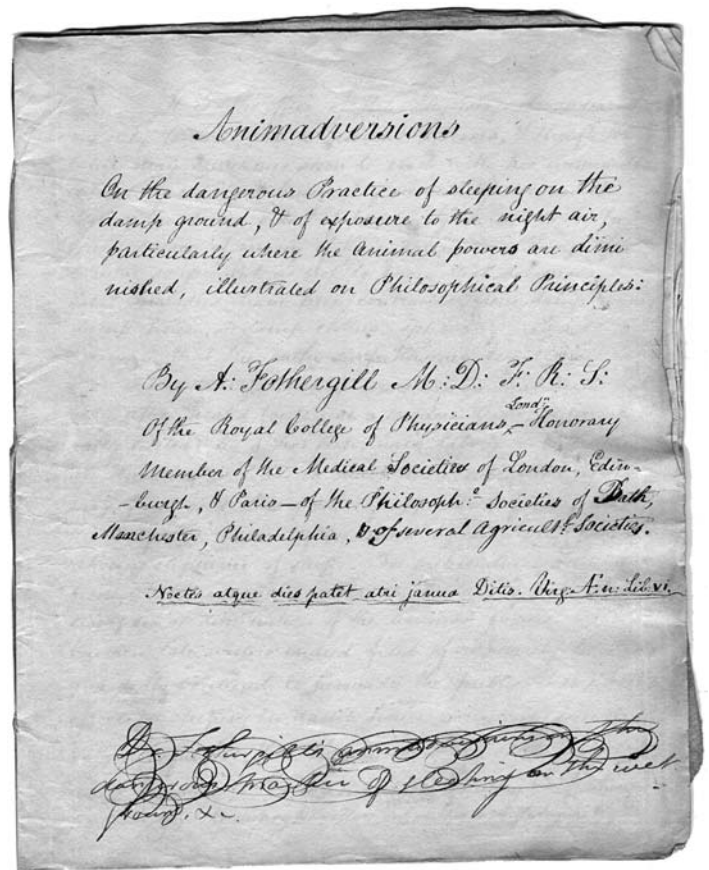 Animadversions
On the dangerous Practice of sleeping on the
damp ground, & of exposure to the night air,
particularly where the animal powers are dimi
nished, illustrated on Philosophical Principles:
By A: Fothergill M: D: F: R: S:
Lond:n
Of the Royal College of Physicians,–Honorary
Member of the Medical Societies of London, Edin–
–burgh, & Paris–of the Philosoph:l Societies of Bath,
Manchester, Philadelphia, & of several Agricult:l Societies.
Noctes atque dies patet atri janua Ditis. Virg. Æn: Lib. vi.
Dr Fothergill's animadversions on the
dangerous practice of sleeping on the wet
ground, &c.